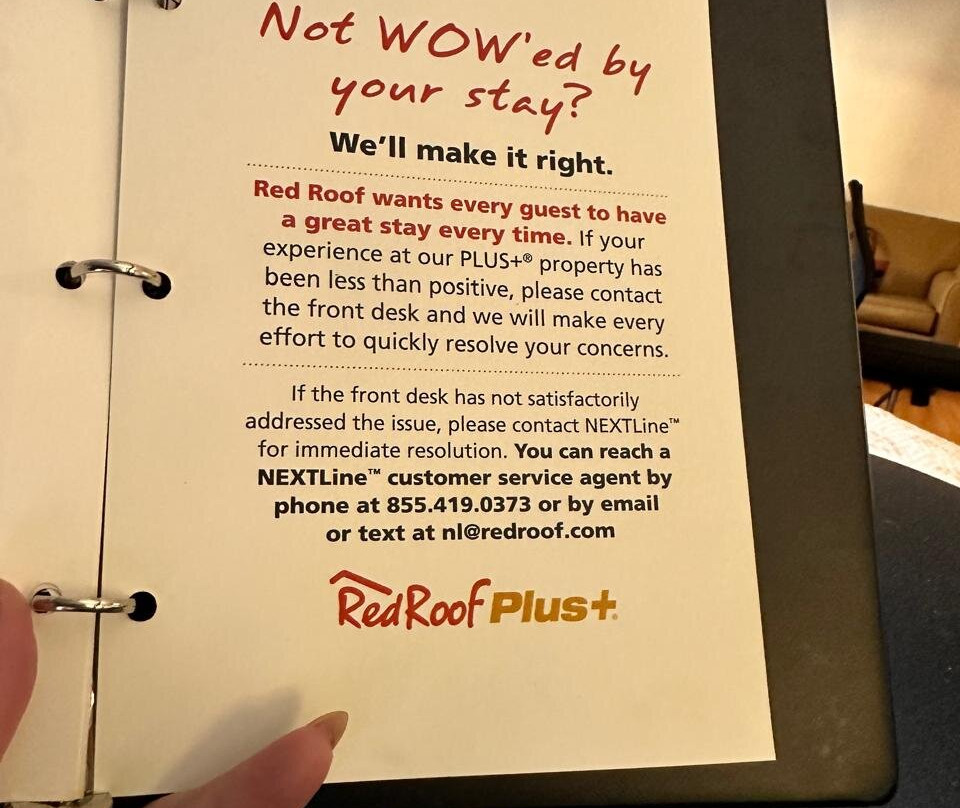 Not WOW'ed by
your stay?
We'll make it right.
Red Roof wants every guest to have
a great stay every time. If your
experience at our PLUS+® property has
been less than positive, please contact
the front desk and we will make every
effort to quickly resolve your concerns.
If the front desk has not satisfactorily
addressed the issue, please contact NEXTLine™
for immediate resolution. You can reach a
NEXTLine™ customer service agent by
phone at 855.419.0373 or by email
or text at nl@redroof.com
RedRoof Plus+